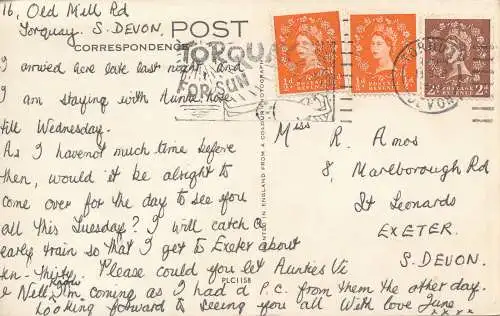 16, Old Mill Rd
Torquay. S. DEVON.
POST
CORRESPONDENCE
TORQUAY
FOR SUN
I arrived here late last night and
I am staying with Aunta Rose
till Wednesday.
As I havenot much time before
then, would it be alright to
come over for the day to see you
all this Tuesday? I will catch a
early train so that I get to Exeter about
ten-thirty. Please could you let Aunties Vi
& Nell know I'm coming as I had a P.C. from them the other day.
Looking forward to seeing you all With love June
x x x x
Miss R. Amos
8, Marlborough Rd
St Leonards
EXETER.
S. DEVON.
PLC1158
PRINTED IN ENGLAND FROM A COLOUR PHOTOGRAPH
½d
POSTAGE REVENUE
½d
½d
POSTAGE REVENUE
½d
2d
POSTAGE REVENUE
2d
TORQUAY
DEVON